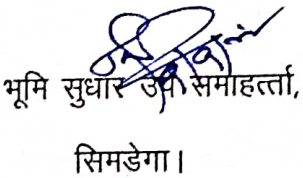 भूमि सुधार उप समाहर्त्ता,
सिमडेगा।